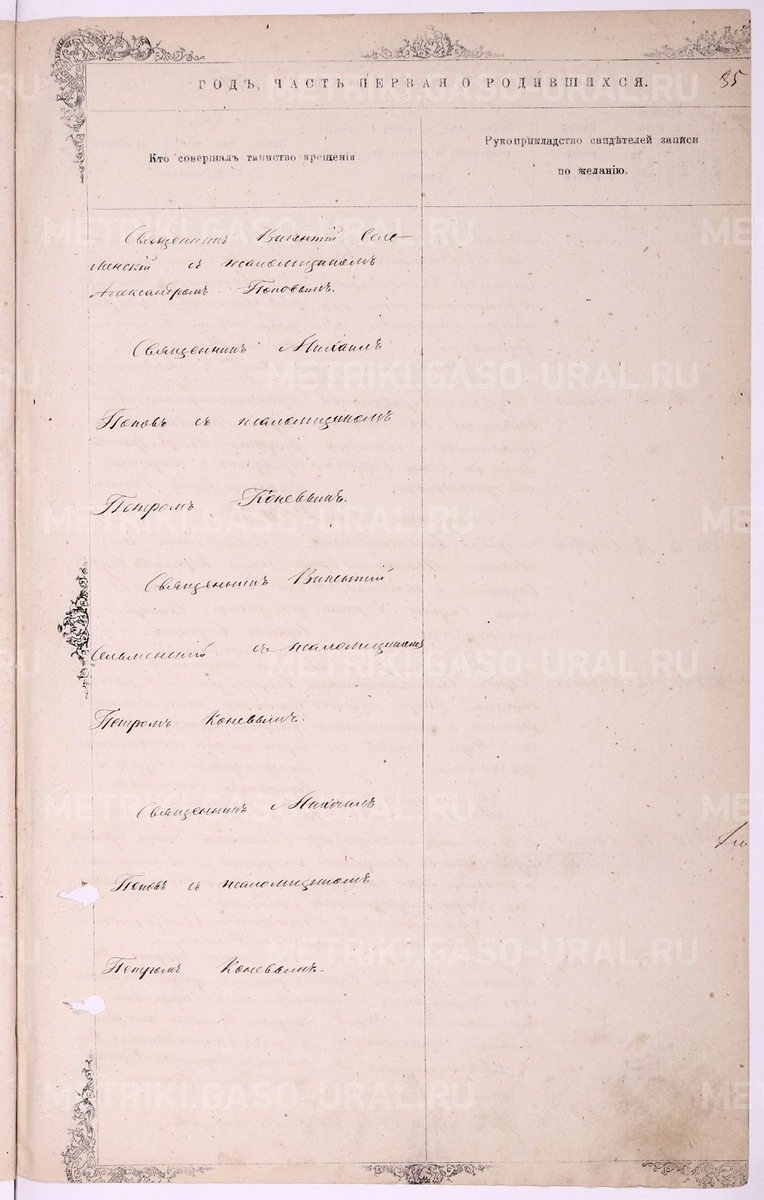 ГОДЪ, ЧАСТЬ ПЕРВАЯ О РОДИВШИХСЯ.
85
Кто совершалъ таинство крещенія
Рукоприкладство свидѣтелей записи
по желанію.
Священникъ Викентій Селе-
менскій съ псаломщикомъ
Александромъ Поповымъ.
Священникъ Михаилъ
Поповъ съ псаломщикомъ
Петромъ Коневымъ.
Священникъ Викентій
съ псаломщикомъ
Петромъ Коневымъ.
Священникъ Михаилъ
Поповъ съ псаломщикомъ
Петромъ Коневымъ.
METRIKI.GASO-URAL.RU